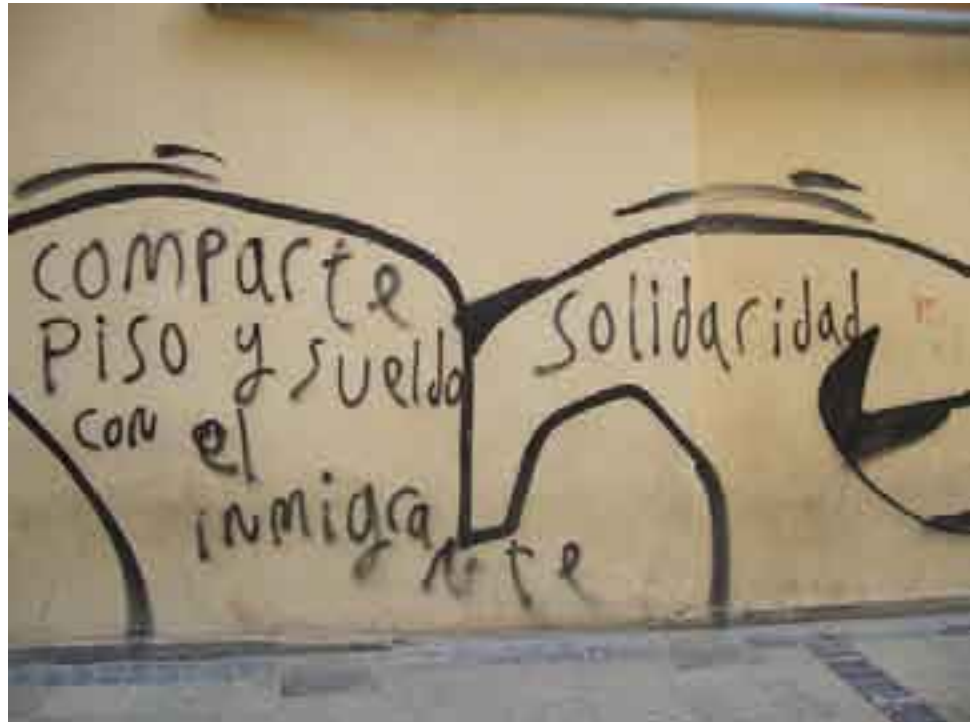 comparte
piso y sueldo
con el
inmigrante
solidaridad